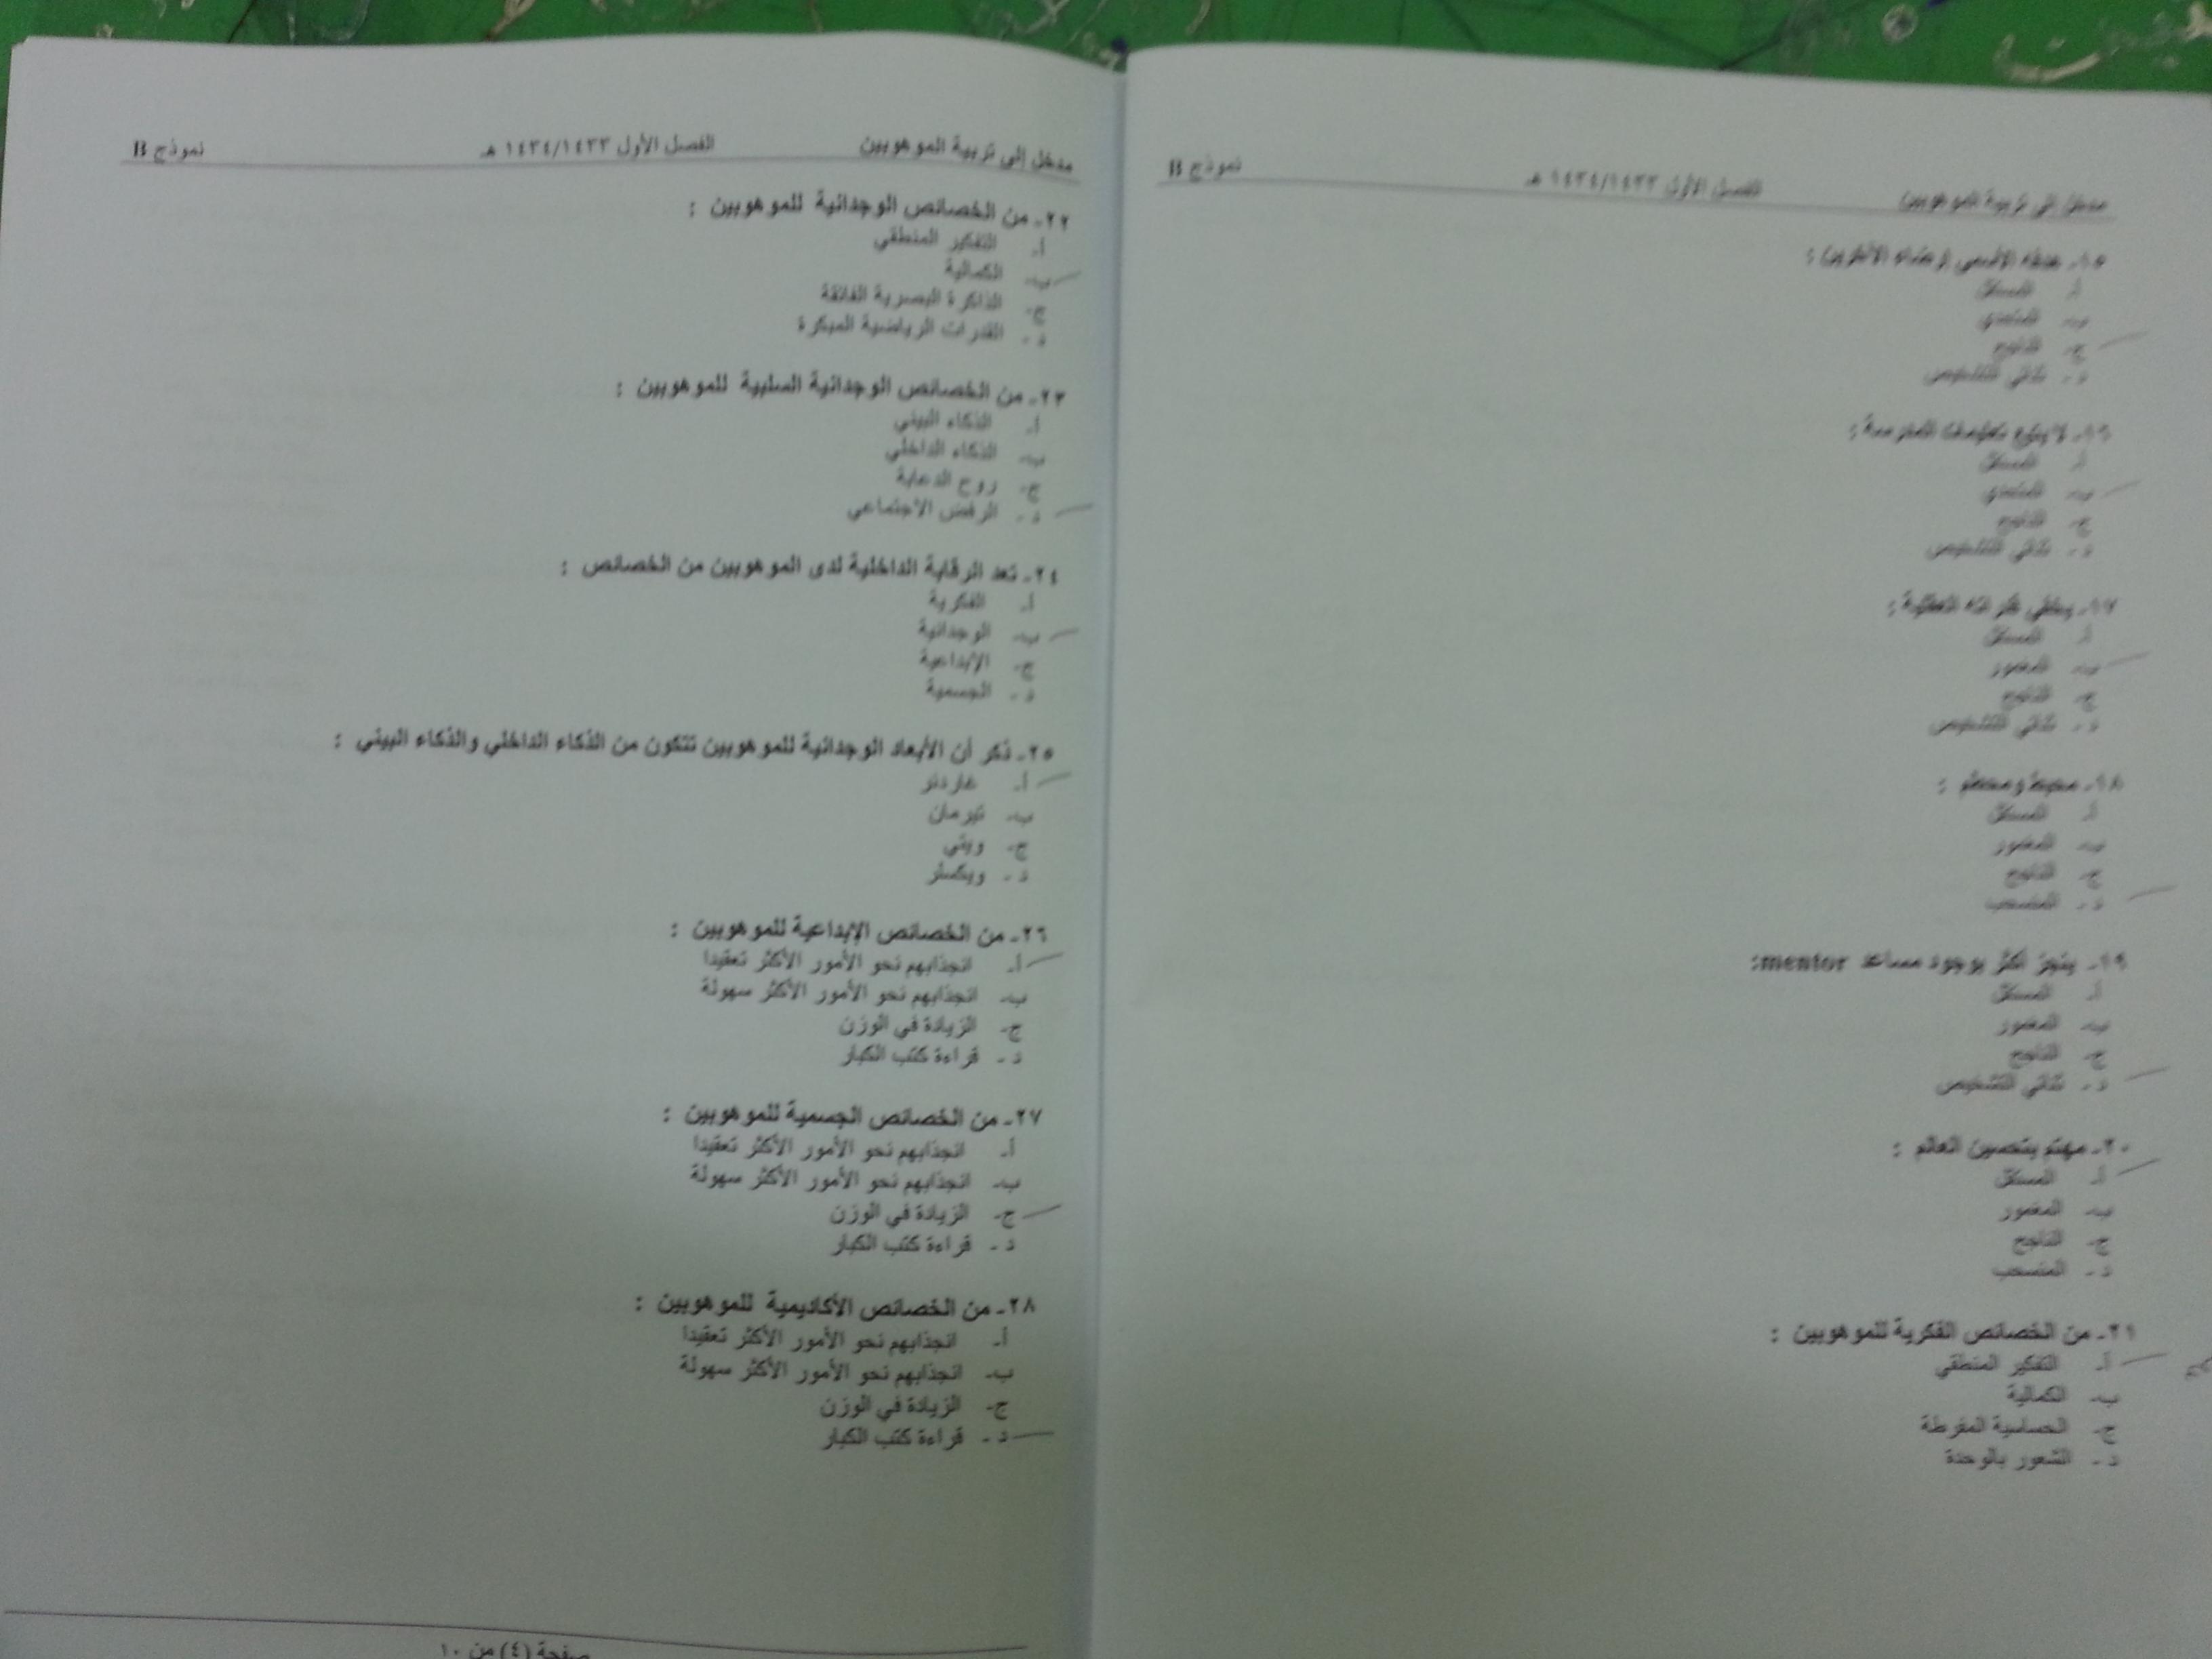 مدخل إلى تربية الموهوبين الفصل الأول ١٤٣٤/١٤٣٣ هـ نموذج B
١٥- هدفه الأسمى إرضاء الآخرين :
أ-
ب- المتحدي
ج- الناجح
د- ثنائي التشخيص
١٦-
أ-
ب- المتحدي
ج- الناجح
د- ثنائي التشخيص
١٧-
أ-
ب- المغمور
ج- الناجح
د- ثنائي التشخيص
١٨- محبط ومحطم :
أ-
ب- المغمور
ج- الناجح
د- المنسحب
١٩- ينجز أكثر بوجود مساعد mentor:
أ- المستقل
ب- المغمور
ج- الناجح
د- ثنائي التشخيص
٢٠- مهتم بتحسين العالم :
أ- المستقل
ب- المغمور
ج- الناجح
د- المنسحب
٢١- من الخصائص الفكرية للموهوبين :
أ- التفكير المنطقي
ب- الكمالية
ج- الحساسية المفرطة
د- الشعور بالوحدة
مدخل إلى تربية الموهوبين الفصل الأول ١٤٣٤/١٤٣٣ هـ نموذج B
٢٢- من الخصائص الوجدانية للموهوبين :
أ- التفكير المنطقي
ب- الكمالية
ج- الذاكرة البصرية الفائقة
د- القدرات الرياضية المبكرة
٢٣- من الخصائص الوجدانية السلبية للموهوبين :
أ- الذكاء البيني
ب- الذكاء الداخلي
ج- روح الدعابة
د- الرفض الاجتماعي
٢٤- تعد الرقابة الداخلية لدى الموهوبين من الخصائص :
أ- الفكرية
ب- الوجدانية
ج- الإبداعية
د- الجسمية
٢٥- ذكر أن الأبعاد الوجدانية للموهوبين تتكون من الذكاء الداخلي والذكاء البيني :
أ- غاردنر
ب- تيرمان
ج- ويتي
د- ويكسلر
٢٦- من الخصائص الإبداعية للموهوبين :
أ- انجذابهم نحو الأمور الأكثر تعقيدا
ب- انجذابهم نحو الأمور الأكثر سهولة
ج- الزيادة في الوزن
د- قراءة كتب الكبار
٢٧- من الخصائص الجسمية للموهوبين :
أ- انجذابهم نحو الأمور الأكثر تعقيدا
ب- انجذابهم نحو الأمور الأكثر سهولة
ج- الزيادة في الوزن
د- قراءة كتب الكبار
٢٨- من الخصائص الأكاديمية للموهوبين :
أ- انجذابهم نحو الأمور الأكثر تعقيدا
ب- انجذابهم نحو الأمور الأكثر سهولة
ج- الزيادة في الوزن
د- قراءة كتب الكبار
صفحة (٤) من ١٠